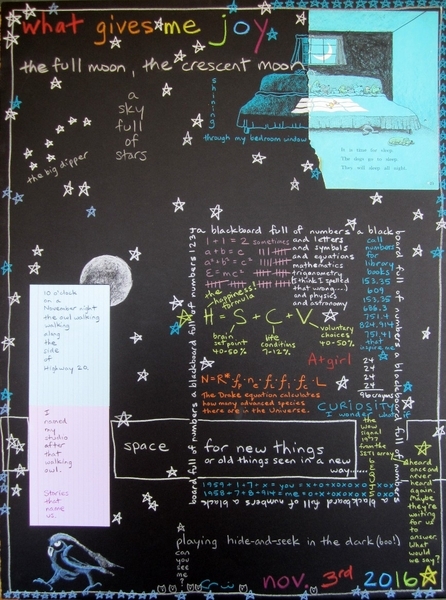 what gives me joy
the full moon, the crescent moon
shining
through my bedroom window
a
sky
full
of
stars
the big dipper
It is time for sleep.
The dogs go to sleep.
They will sleep all night.
a blackboard full of numbers a black
board full of numbers a blackboard full of numbers
board full of numbers a blackboard full of numbers 123
1+1=2 sometimes
a+b=c
a²+b²=c²
E=mc²
and letters
and symbols
and equations
mathematics
trigonometry
(I think I spelled
that wrong....)
and physics
and astronomy
call
numbers
for
library
books!
153.35
609
153.35
686.3
751.4
824.914
751.41
that
inspire me
the
happiness
formula
H = S + C + V
brain
set point
40-50%
life
conditions
7-12%
voluntary
choices
40-50%
A+ girl
24
24
24
24
96 crayons
N=R* fp ne fl fi fc L
The Drake equation calculates
how many advanced species
there are in the Universe.
CURIOSITY
I wonder what if
the
wow
signal
1977
from the
SETI array
6
E
Q
U
J
5
heard
once and
never heard
again.
Maybe
they're
waiting
for us
to
answer.
What
would
we say?
10 o'clock
on a
November night
the owl walking
walking
along
the
side
of
Highway 20.
I
named
my
studio
after
that
walking
owl.
Stories
that
name
us.
space
for new things
or old things seen in a new
way.......
1959+1+7+x = you = x+o+xoxoxo
1958+7+8+914 = me = o+x+oxoxox
playing hide-and-seek in the dark (boo!)
can
you
see
me
?
nov. 3rd 2016